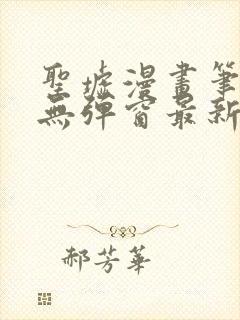 聖墟漫畫筆
無彈窗最新
郝芳華